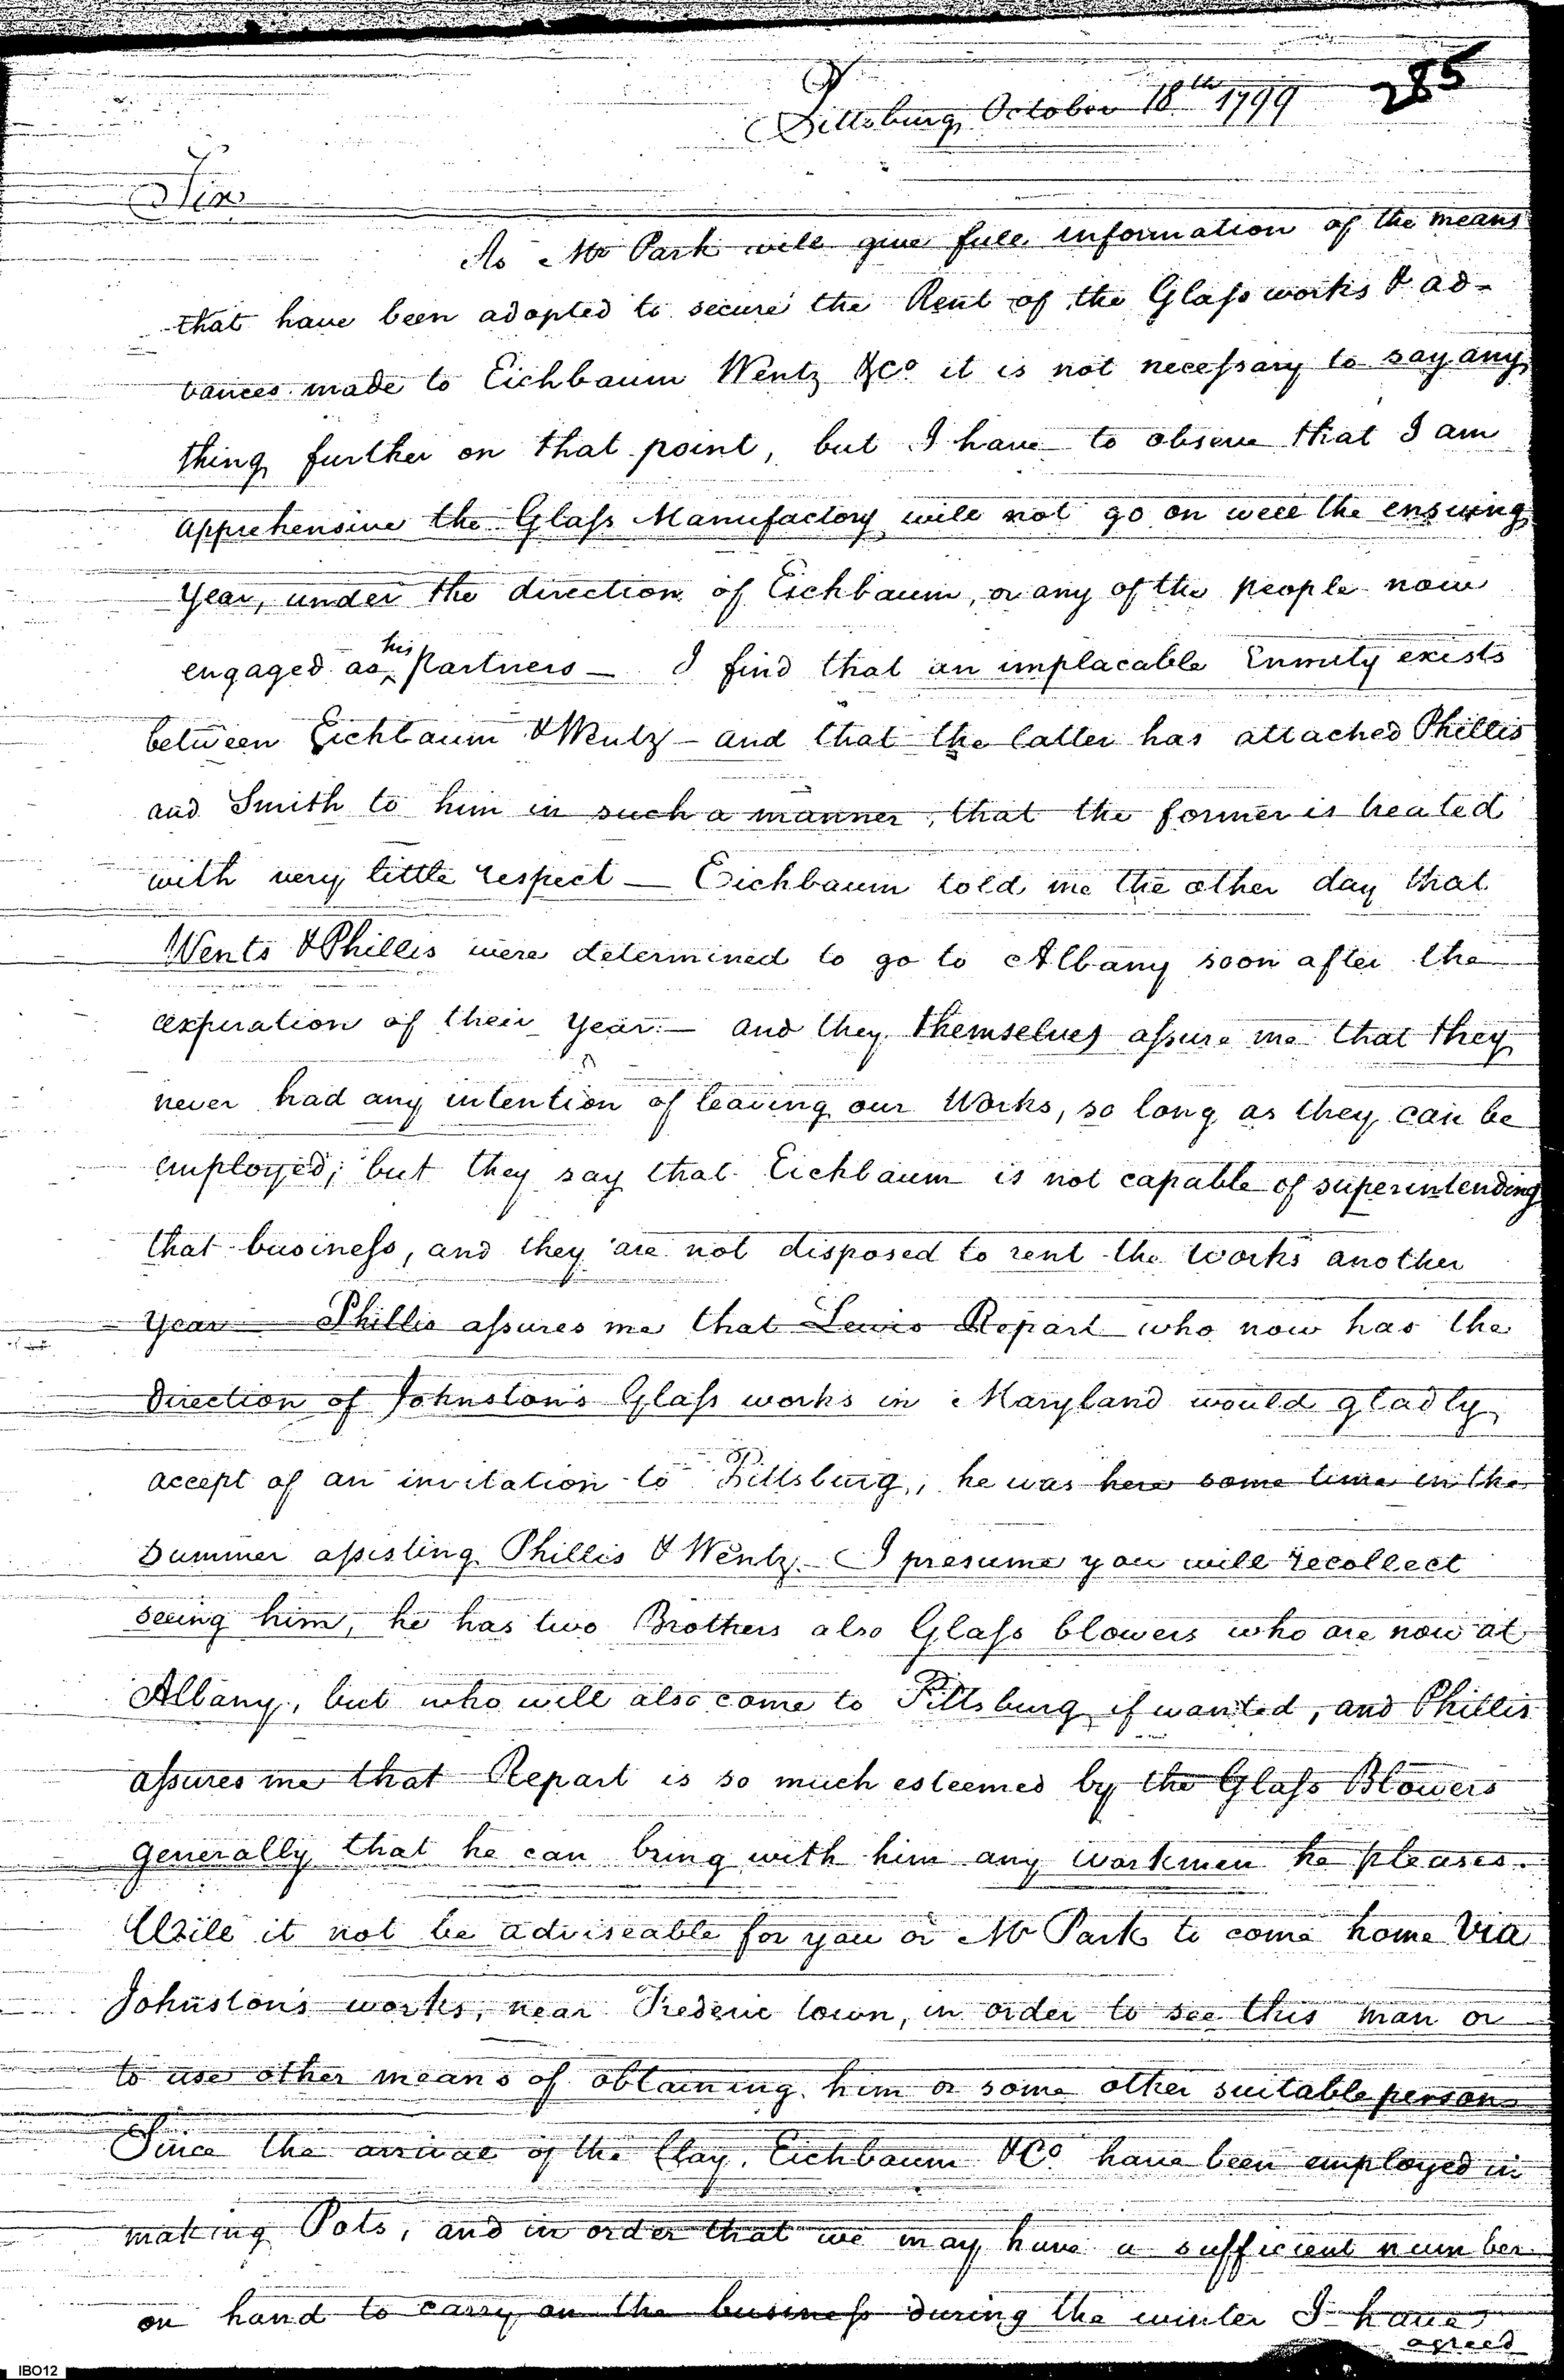 285
Pittsburg October 18th 1799
Sir
As Mr Park will give full information of the means
that have been adopted to secure the Rent of the Glass works & ad-
vances made to Eichbaum Wentz &Co it is not necessary to say any
thing further on that point, but I have to observe that I am
apprehensive the Glass Manufactory will not go on well the ensuing
year, under the direction of Eichbaum, or any of the people now
engaged as his partners — I find that an implacable Enmity exists
between Eichbaum & Wentz — and that the latter has attached Phillis
and Smith to him in such a manner, that the former is treated
with very little respect — Eichbaum told me the other day that
Wents & Phillis were determined to go to Albany soon after the
expiration of their year — and they themselves assure me that they
never had any intention of leaving our Works, so long as they can be
employed; but they say that Eichbaum is not capable of superintending
that business, and they are not disposed to rent the works another
year — Phillis assures me that Lewis Repart who now has the
direction of Johnston's Glass works in Maryland would gladly
accept of an invitation to Pittsburg, he was here some time in the
Summer assisting Phillis & Wentz — I presume you will recollect
seeing him, he has two Brothers also Glass blowers who are now at
Albany, but who will also come to Pittsburg if wanted, and Phillis
assures me that Repart is so much esteemed by the Glass Blowers
generally that he can bring with him any workmen he pleases.
Will it not be adviseable for you or Mr Park to come home Via
Johnston's works, near Frederic town, in order to see this man or
to use other means of obtaining him or some other suitable person
Since the arrival of the Clay, Eichbaum & Co. have been employed in
making Pots, and in order that we may have a sufficient number
on hand to carry on the business during the winter I have
agreed
IBO12